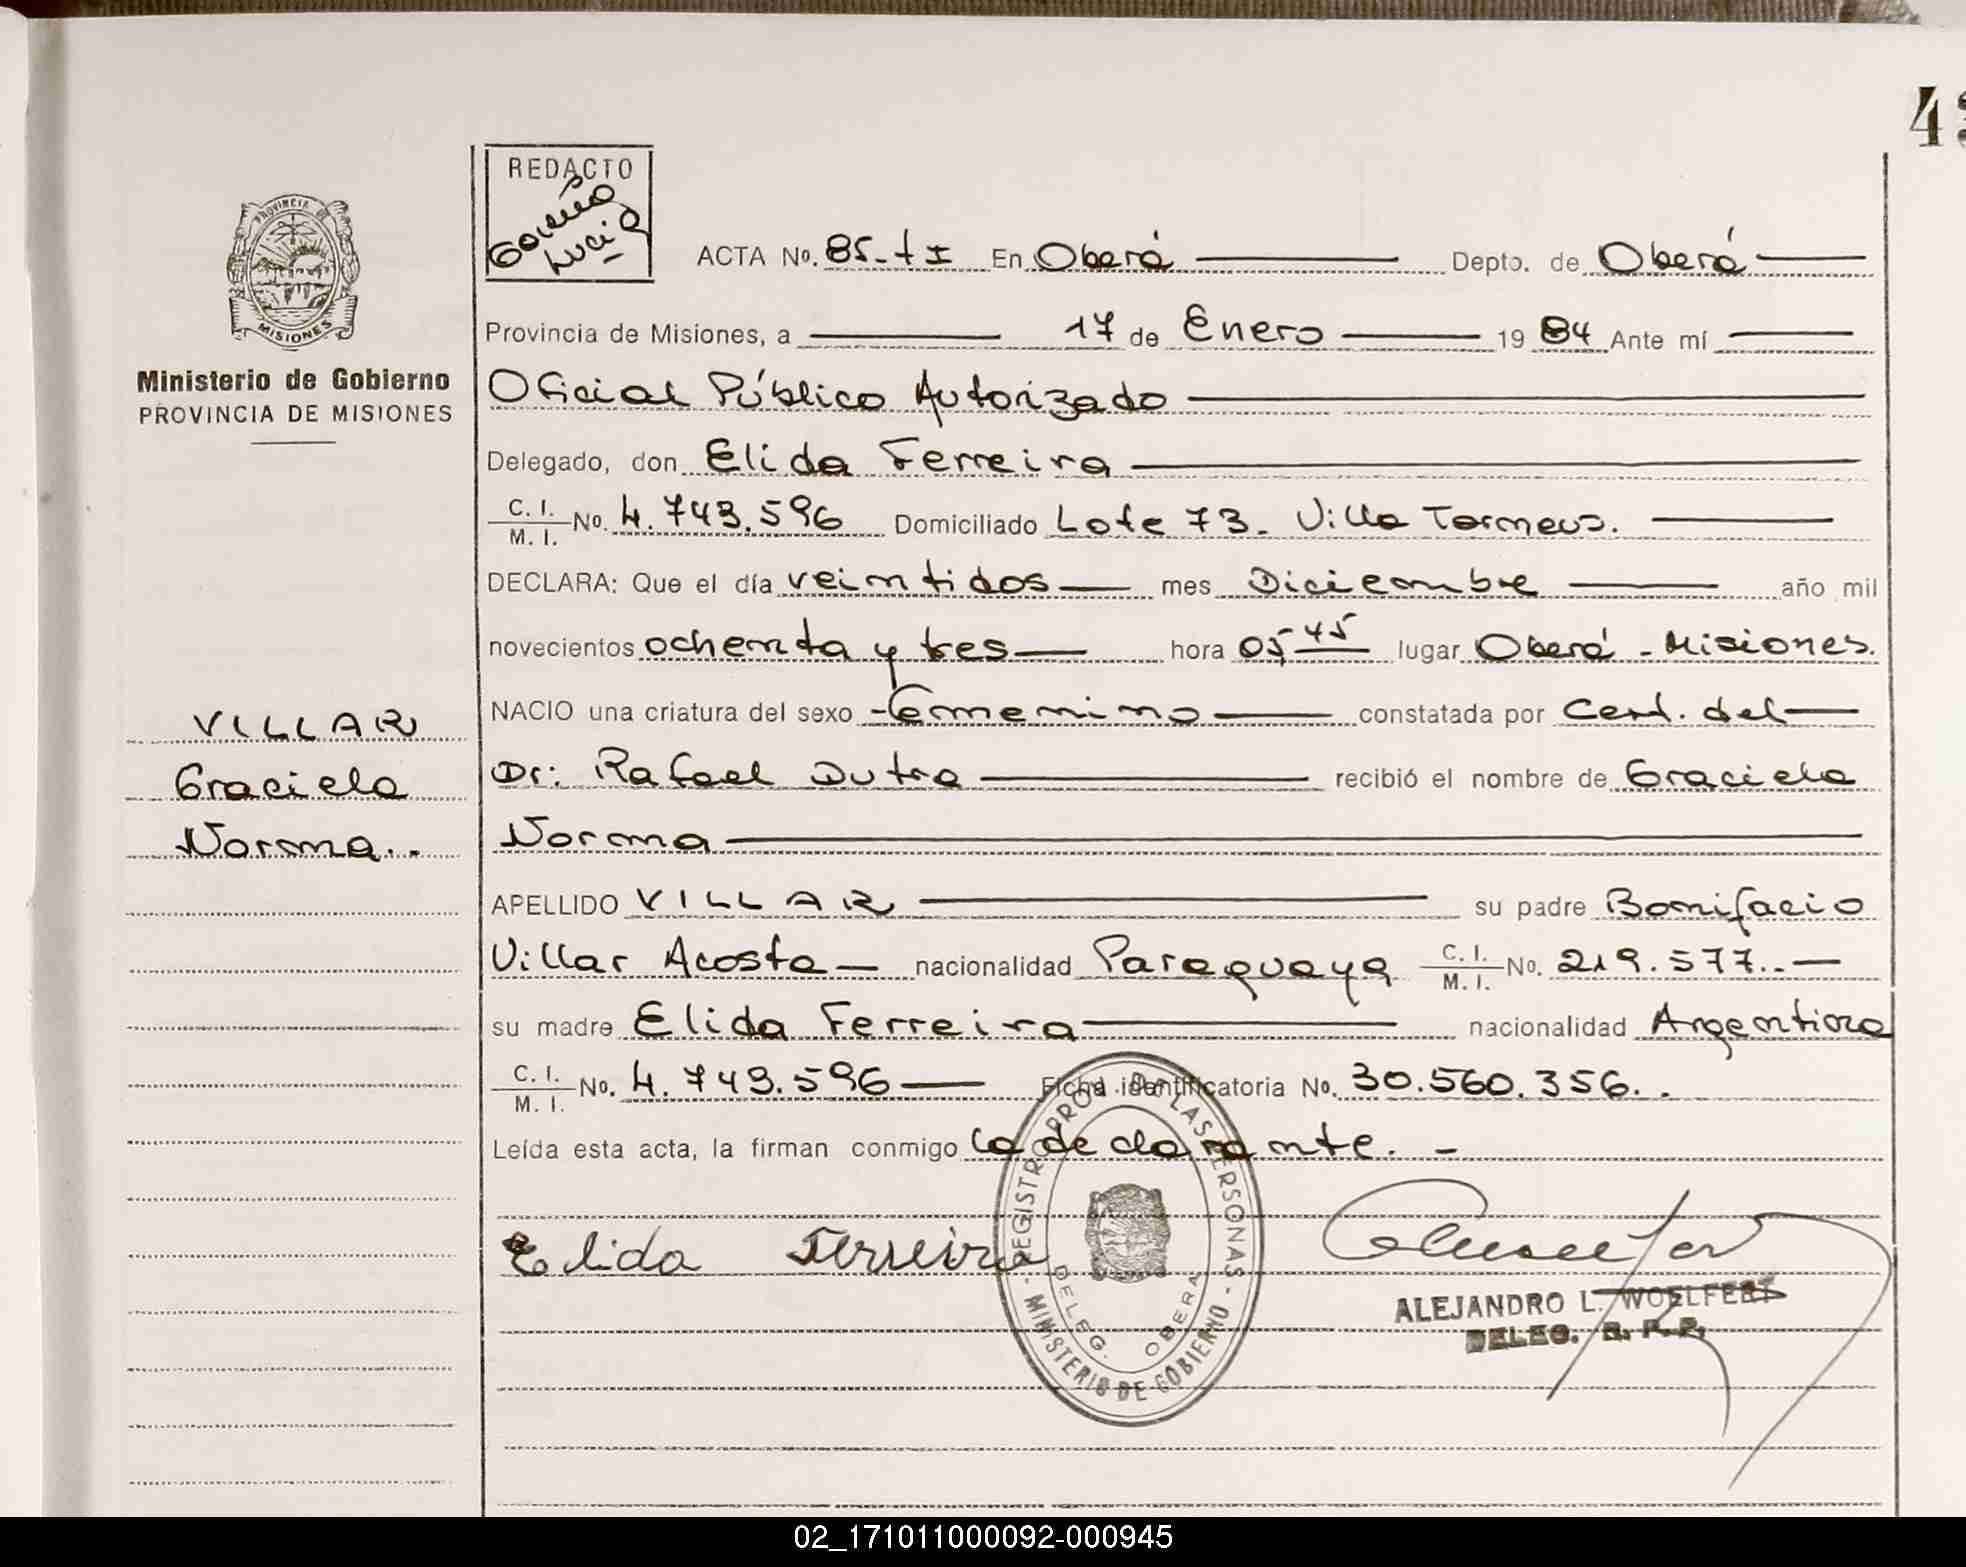 43
REDACTO
Lucia
PROVINCIA DE
MISIONES
Ministerio de Gobierno
PROVINCIA DE MISIONES
ACTA No. 85-tI En Oberá Depto. de Oberá
Provincia de Misiones, a 17 de Enero 1984 Ante mí
Oficial Público Autorizado
Delegado, don Elida Ferreira
C. I. / M. I. No. 4.743.596 Domiciliado Lote 73. Villa
DECLARA: Que el día veintidos mes Diciembre año mil
novecientos ochenta y tres hora 05 45 lugar Oberá - Misiones.
NACIO una criatura del sexo Femenino constatada por Cert. del
Dr: Rafael Dutra recibió el nombre de Graciela
Norma
VILLAR
Graciela
Norma..
APELLIDO VILLAR su padre Bonifacio
Villar Acosta nacionalidad Paraguaya C. I. / M. I. No. 219.577..
su madre Elida Ferreira nacionalidad Argentina
C. I. / M. I. No. 4.743.596 Ficha identificatoria No. 30.560.356..
Leída esta acta, la firman conmigo la declarante. -
Elida Ferreira
REGISTRO PROV. DE LAS PERSONAS - MINISTERIO DE GOBIERNO -
DELEG. OBERA
ALEJANDRO L. WOELFERT
DELEG. R. P. P.
02_171011000092-000945